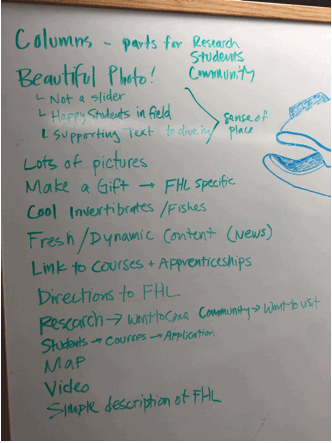 Columns - parts for Research
Students
Community
Beautiful Photo!
Not a slider
Happy Students in field
Supporting Text to dive in
sense of
place
Lots of pictures
Make a Gift → FHL Specific
Cool Invertibrates/Fishes
Fresh/Dynamic Content (News)
Link to Courses + Apprenticeships
Directions to FHL
Research → Want to Community → Want to visit
Students → Courses → Application
Map
Video
Simple description of FHL